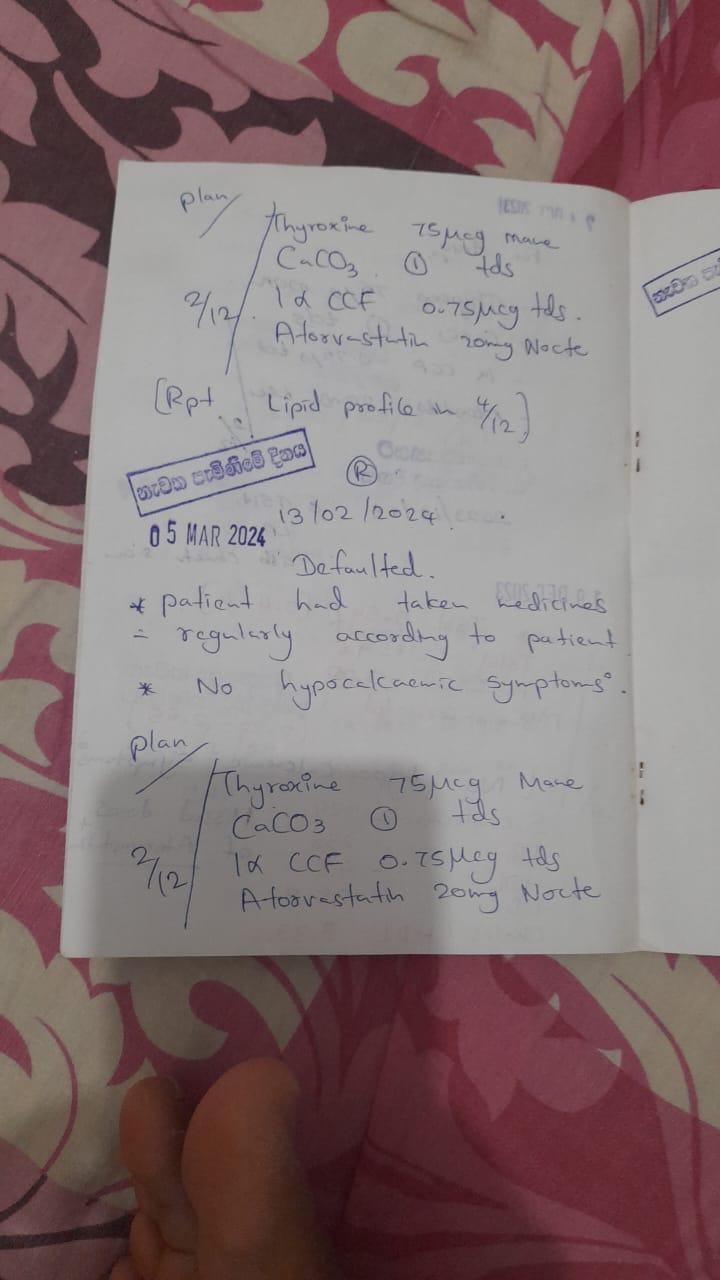 plan
Thyroxine 75µcg mane
CaCO3 ① tds
2/12 1α CCF 0.75µcg tds.
Atorvastatin 20mg Nocte
[Rpt Lipid profile in 4/12]
නැවත පැමිණීමේ දිනය
Ⓡ
13/02/2024
05 MAR 2024
Defaulted.
* patient had taken medicines
regularly according to patient
* No hypocalcaemic symptoms.
plan
Thyroxine 75µcg Mane
CaCO3 ① tds
2/12 1α CCF 0.75µcg tds
Atorvastatin 20mg Nocte